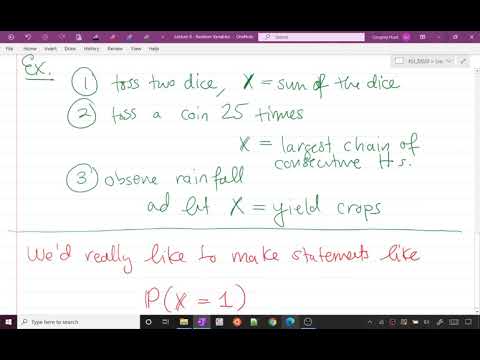 Lecture 6 - Random Variables - OneNote
Search
Gregory Hunt
Ex.
① toss two dice, X = sum of the dice
② toss a coin 25 times
X = largest chain of
consecutive Hs.
③ observe rainfall
ad let X = yield crops
We'd really like to make statements like
P(X = 1)
Type here to search